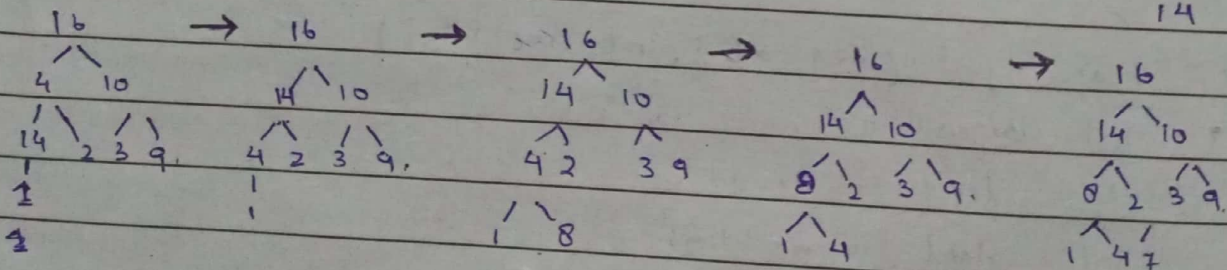 14
16 → 16 → 16 → 16 → 16
4 10 14 10 14 10 14 10 14 10
14 2 3 9. 4 2 3 9. 4 2 3 9 8 2 3 9. 8 2 3 9.
1 1 1 8 1 4 1 4 7